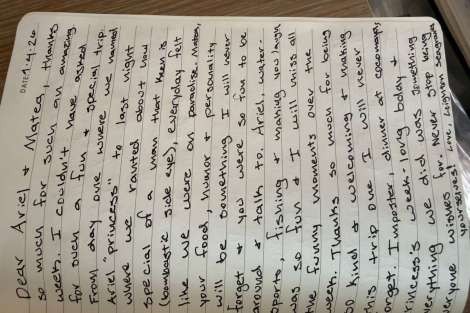 DATE: 4.26
Dear Ariel & Matea, thanks
so much for such an amazing
week. I couldn't have asked
for such a fun & special trip.
From day one where we named
Ariel "princess" to last night
where we ranted about how
special of a man that then is
(bombastic side eye), everyday felt
like we were on paradise. Matea,
your food, humor & personality
will be something I will never
forget & you were so fun to be
around & talk to. Ariel, water-
sports, fishing & making you laugh
was so fun & I will miss all
the funny moments over the
week. Thanks so much for being
so kind & welcoming & making
this trip one I will never
forget. Imposter, dinner at cocomaya,
princess's week-long bday &
everything we did was something
everyone wishes for. Never stop being
yourselves! Love,